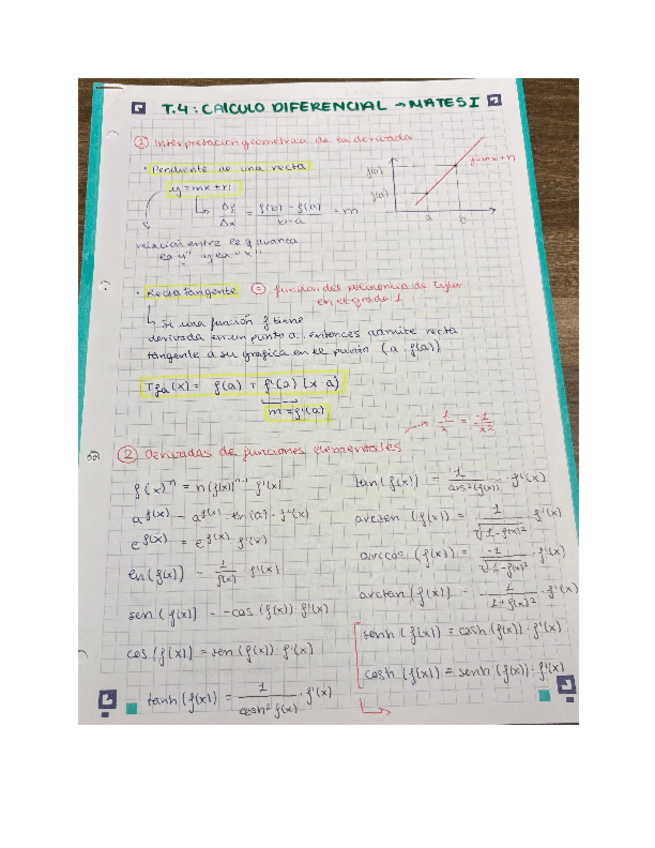 T.4: CALCULO DIFERENCIAL → MATES I
① Interpretación geométrica de la derivada
· Pendiente de una recta
y = mx + n
Δf/Δx = f(b) - f(a) / b-a = m
f(b)
f(a)
a b
y=mx+n
relación entre lo q avanza
la "y" y la "x"
· Recta tangente ⊜ función del polinomio de Taylor
en el grado 1
↳ Si una función f tiene
derivada en un punto a. entonces admite recta
tangente a su grafica en el punto (a, f(a))
Tfa(x) = f(a) + f'(a) (x-a)
m = f'(a)
→ 1/x = -1/x²
② Derivadas de funciones elementales
f(x)^n = n(f(x))^n-1 · f'(x)
a^f(x) = a^f(x) · ln(a) · f'(x)
e^f(x) = e^f(x) · f'(x)
ln(f(x)) = 1/f(x) · f'(x)
sen(f(x)) = -cos(f(x)) · f'(x)
cos(f(x)) = sen(f(x)) · f'(x)
tanh(f(x)) = 1/cosh² f(x) · f'(x)
tan(f(x)) = 1/cos²(f(x)) · f'(x)
arcsen(f(x)) = 1/√1-f(x)² · f'(x)
arccos(f(x)) = -1/√1-f(x)² · f'(x)
arctan(f(x)) = 1/1+f(x)² · f'(x)
senh(f(x)) = cosh(f(x)) · f'(x)
cosh(f(x)) = senh(f(x)) · f'(x)